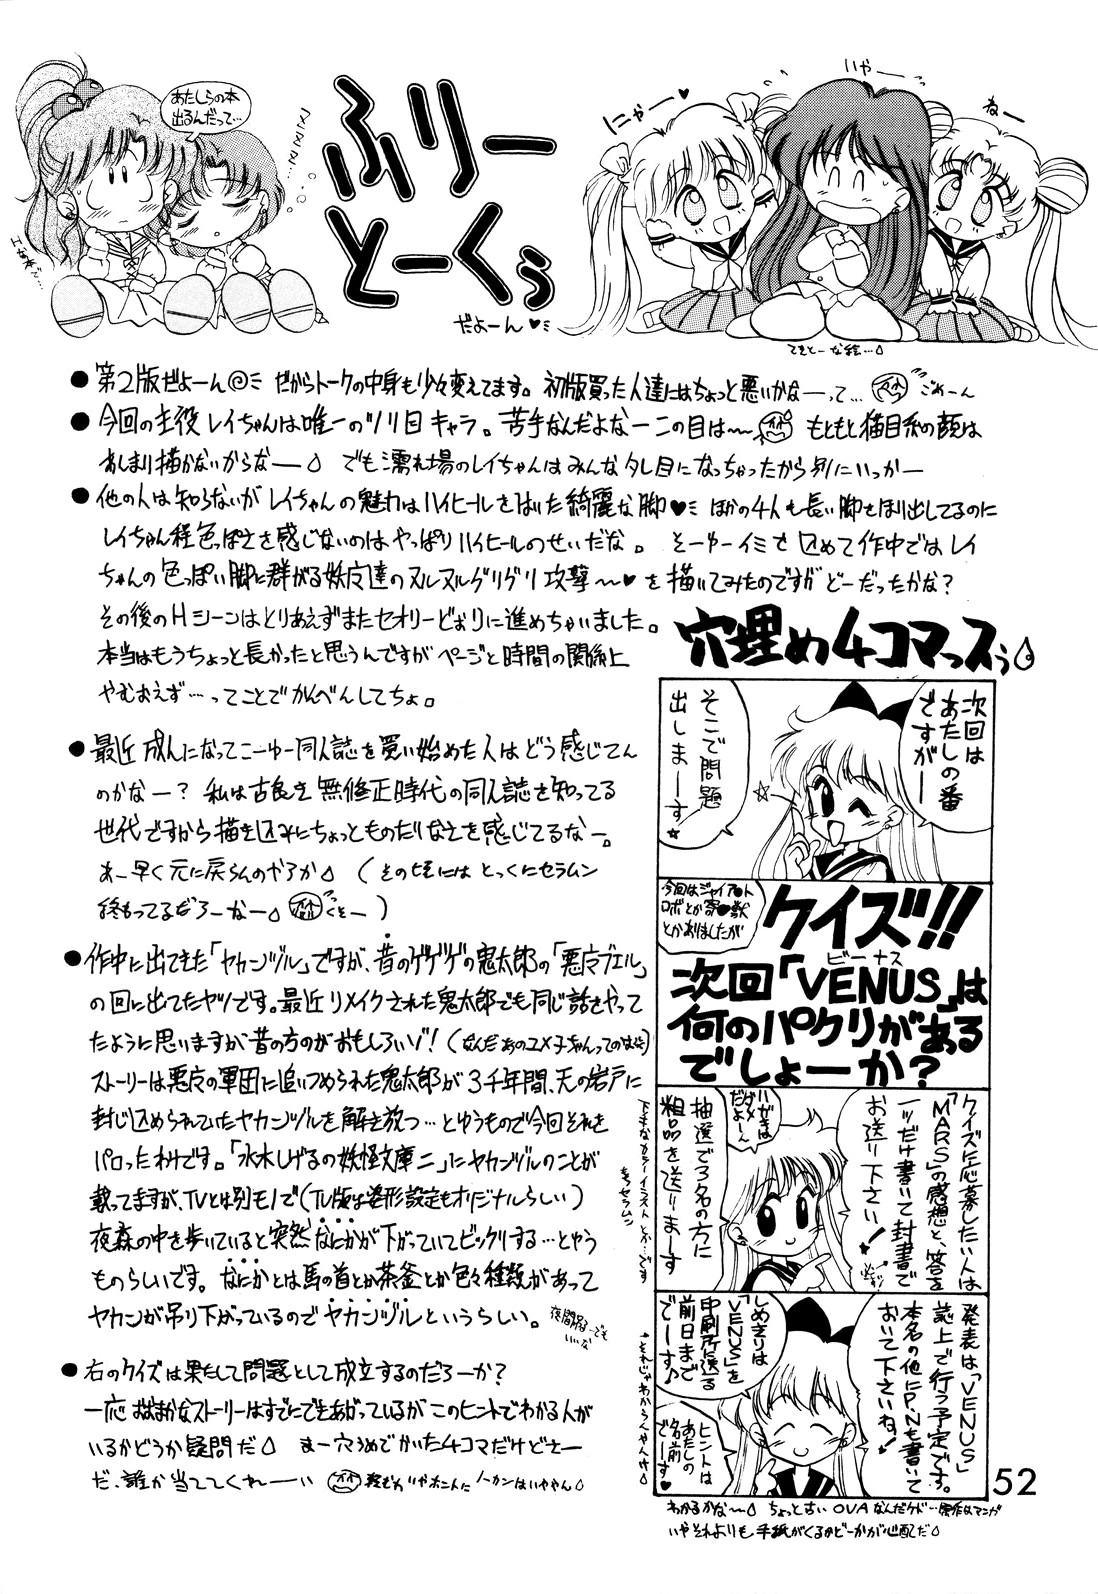 あたしらの本
出るんだって…
ふりー
とーくぅ
だよーん♥
にゃー♥
いやー
ねー
てきとーな絵…
●第2版だよーん だからトークの中身も少々変えてます。初版買った人達にはちょっと悪いかなーって… ごめーん
●今回の主役レイちゃんは唯一のツリ目キャラ。苦手なんだよなーこの目は〜 もともと猫目系の顔は
あんまり描かないからなー でも濡れ場のレイちゃんはみんなタレ目になっちゃったから別にいっかー
●他の人は知らないがレイちゃんの魅力はハイヒールをはいた綺麗な脚♥ ほかの4人も長い脚をほり出してるのに
レイちゃん程色っぽさを感じないのはやっぱりハイヒールのせいだな。そーゆーイミを込めて作中ではレイ
ちゃんの色っぽい脚に群がる妖魔達のヌルヌルグリグリ攻撃〜♥を描いてみたのですがどーだったかな?
その後のHシーンはとりあえずまたセオリーどおりに進めちゃいました。
本当はもうちょっと長かったと思うんですがページと時間の関係上
やむおえず…ってことでかんべんしてちょ。
●最近成人になってこーゆー同人誌を買い始めた人はどう感じてん
のかなー?私は古良き無修正時代の同人誌を知ってる
世代ですから描き込みにちょっとものたりなさを感じてるなー。
あー早く元に戻らんのやろか (そのころにはとっくにセラムン
終わってるだろーなー くそー)
●作中に出てきた「ヤカンヅル」ですが、昔のゲゲゲの鬼太郎の「悪魔ブエル」
の回に出てたヤツです。最近リメイクされた鬼太郎でも同じ話をやって
たように思いますが昔の方のがおもしろいゾ!(なんだあのユメ子ちゃんってのは)
ストーリーは悪魔の軍団に追いつめられた鬼太郎が3千年間、天の岩戸に
封じ込められていたヤカンヅルを解き放つ…とゆうもので今回それを
パロったわけです。「水木しげるの妖怪文庫二」にヤカンヅルのことが
載ってますが、TVとは別モノで(TV版は姿形設定もオリジナルらしい)
夜森の中を歩いていると突然なにかが下がっていてビックリする…とゆう
ものらしいです。なにかとは馬の首とか茶釜とか色々種類があって
ヤカンが吊り下がっているのでヤカンヅルというらしい。
●右のクイズは果たして問題として成立するのだろーか?
一応おおまかなストーリーはすでにできあがっているがこのヒントでわかる人が
いるかどうか疑問だ まー穴うめでかいた4コマだけどさー
だ、誰か当ててくれーい
穴埋め4コマっスぅ
次回は
あたしの番
ですがー
そこで問題
出しまーす★
今回はジャイア●ト
ロボとか寄●獣
とかありましたが
クイズ!!
次回「VENUS」は
ビーナス
何のパクリがある
でしょーか?
クイズに応募したい人は
「MARS」の感想と、答えを
一ツだけ書いて封書で
お送り下さい!
ハガキは
ダメ
だよーん
抽選で3名の方に
粗品を送りまーす
下手なカラーイラストとか…です
もちセラムン
発表は「VENUS」
誌上で行う予定です。
本名の他にP.Nも書いて
おいて下さいね!
しめきりは
「VENUS」を
印刷所に送る
前日まで
でーす♪
ヒントは
あたしの
名前
でーす♥
52
わかるかな〜 ちょっと古い OVAなんだケド…原作はマンガ
いやそれよりも手紙がくるかどーかが心配だ